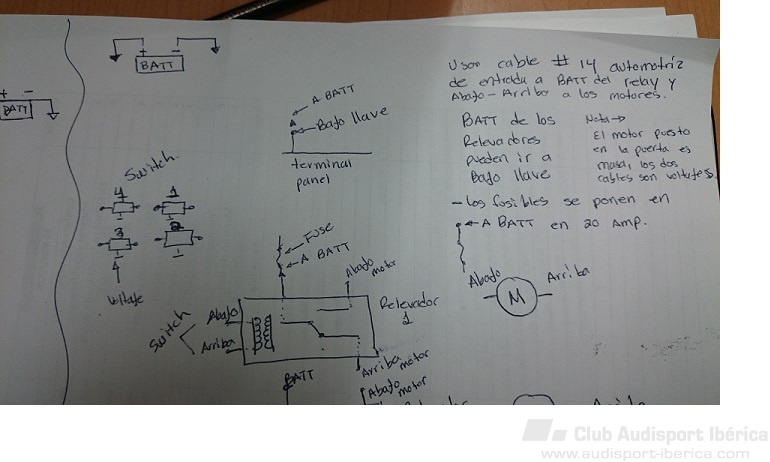 + -
BATT
+ -
BATT
A BATT
Bajo llave
terminal
panel
Usar cable # 14 automotriz
de entrada a BATT del relay y
Abajo-Arriba a los motores.
BATT de los
Relevadores
pueden ir a
Bajo llave
Nota→
El motor puesto
en la puerta es
masa, los dos
cables son voltajes.
- los fusibles se ponen en
A BATT en 20 Amp.
Switch
4 1
3 2
4
Voltaje
Fuse
A BATT
Abajo
motor
Abajo
M
Arriba
Switch
Abajo
Arriba
Relevador
1
Arriba
motor
BATT
Abajo
motor
Club Audisport Ibérica
www.audisport-iberica.com